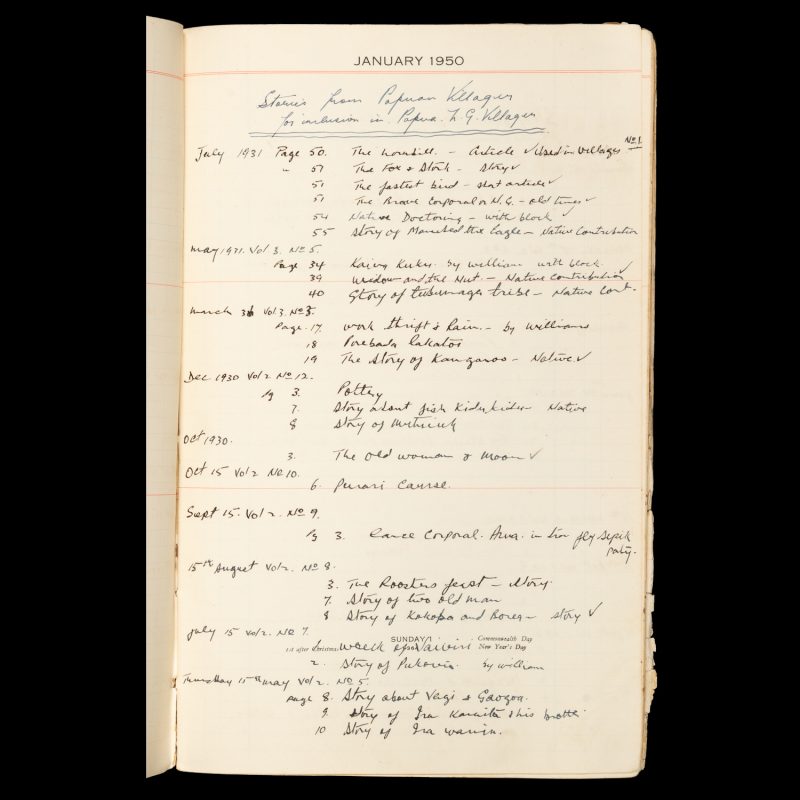 JANUARY 1950
Stories from Papuan Villager
for inclusion in Papua N. G. Villager
July 1931 Page 50. The hornbill. - Article ✓ Used in Villager No 1.
" 51 The Fox & Stork - Story ✓
51 The fastest bird - short article ✓
51 The Brave Corporal or N.G. - old times ✓
54 Native Doctoring - with block ✓
55 Story of the Eagle - Native Contribution
May 1931. Vol 3. No 5.
Page 34 Kaiva Kuku. by William with block.
39 Widow and the Nut - Native Contribution ✓
40 Story of tribe - Native Cont.
March 31 Vol 3. No 3.
Page. 17. Work thrift & Rain. - by Williams
18 Porebada Lakatoi
19 The Story of Kangaroo - Native ✓
Dec 1930 Vol 2 No 12.
Pg 3. Pottery
7. Story about fish Kidukidu - Native
8 Story of
Oct 1930.
3. The old woman & Moon ✓
Oct 15 Vol 2 No 10.
6. Purari Course.
Sept 15. Vol 2. No 9.
Pg 3. Lance Corporal. in Fly Sepik
Party.
15th August Vol 2. No 8.
3. The Roosters feast - Story.
7. Story of two old man
8 Story of Kokopa and - Story ✓
July 15 Vol 2. No 7.
SUNDAY 1 Commonwealth Day
1st after Christmas New Year's Day
1. Wreck of Vaiviri
2. Story of by William
Thursday 15th May Vol 2. No 5.
Page 8. Story about Vagi & Gaogoa.
9. Story of Ira & his brother.
10 Story of Ira